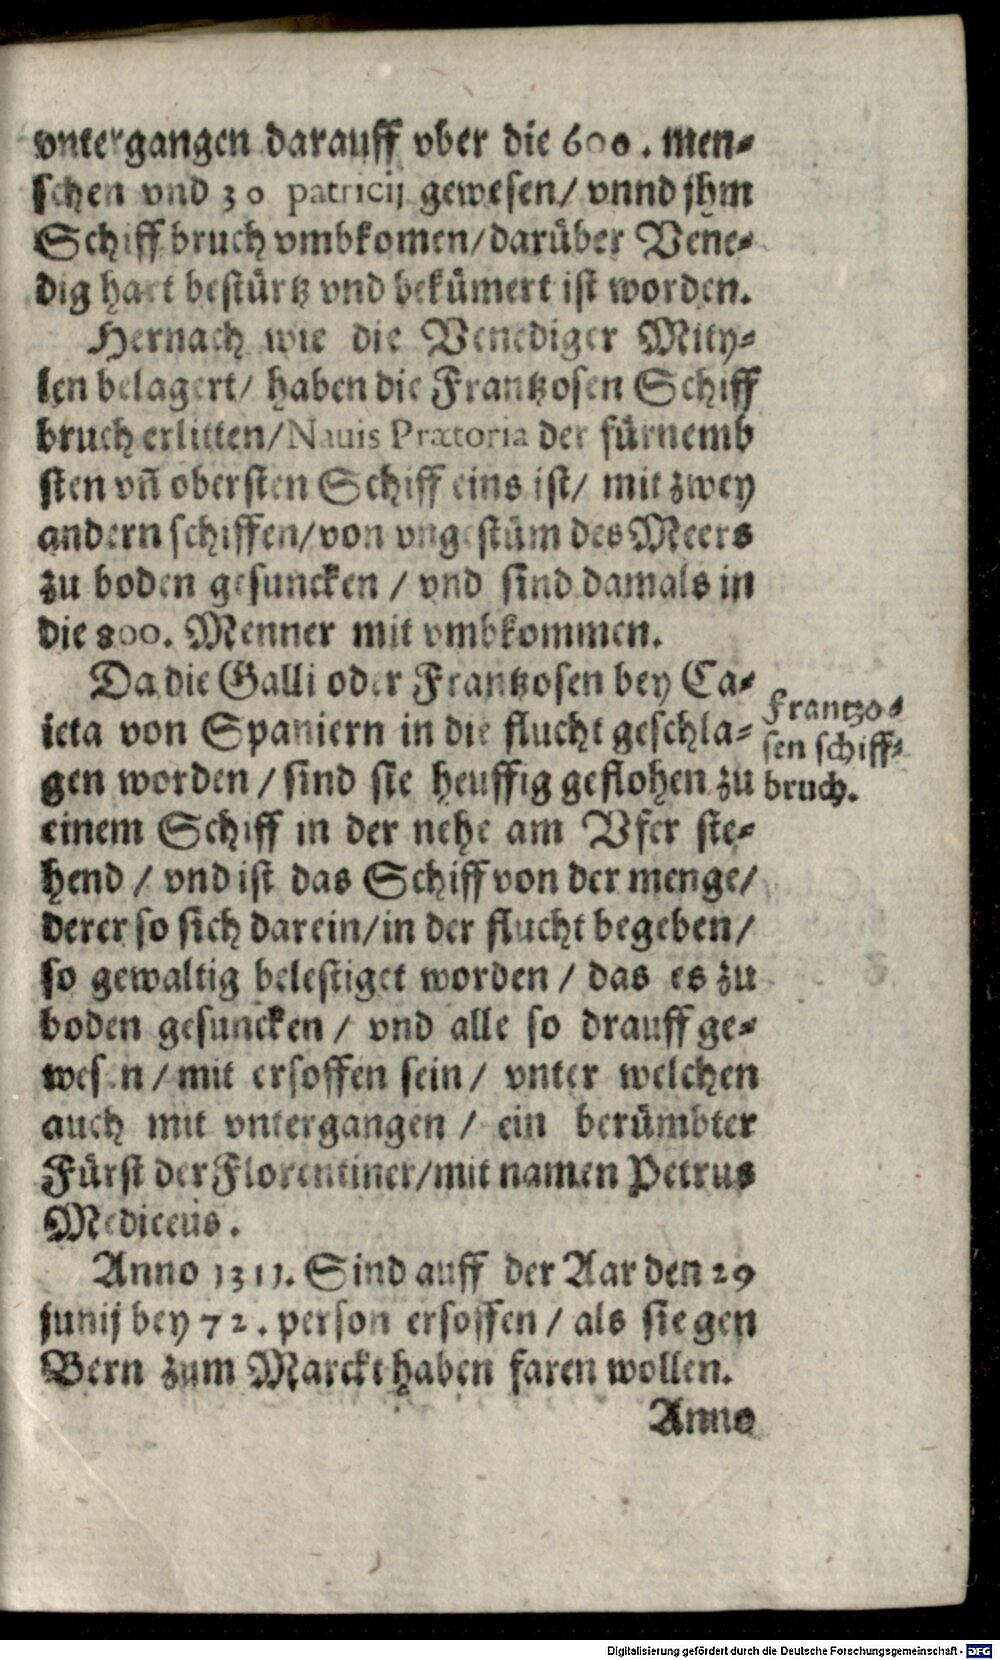 vntergangen darauff vber die 600. men-
schen vnd 30 patricij gewesen/ vnnd jhm
Schiffbruch vmbkomen/darüber Vene-
dig hart bestürtz vnd bekümert ist worden.
Hernach wie die Venediger Mity-
len belagert/ haben die Frantzosen Schiff
bruch erlitten/Nauis Prætoria der fürnemb
sten vñ obersten Schiff eins ist/ mit zwey
andern schiffen/von vngestüm des Meers
zu boden gesuncken / vnd sind damals in
die 800. Menner mit vmbkommen.
Da die Galli oder Frantzosen bey Ca-
ieta von Spaniern in die flucht geschla-
gen worden / sind sie heuffig geflohen zu
einem Schiff in der nehe am Vfer ste-
hend / vnd ist das Schiff von der menge/
derer so sich darein/in der flucht begeben/
so gewaltig belestiget worden / das es zu
boden gesuncken / vnd alle so drauff ge-
wesen / mit ersoffen sein / vnter welchen
auch mit vntergangen / ein berümbter
Fürst der Florentiner/mit namen Petrus
Mediceus.
Anno 1311. Sind auff der Aar den 29
junij bey 72. person ersoffen / als sie gen
Bern zum Marckt haben faren wollen.
Anno
Frantzo-
sen schiff-
bruch.
Digitalisierung gefördert durch die Deutsche Forschungsgemeinschaft - DFG